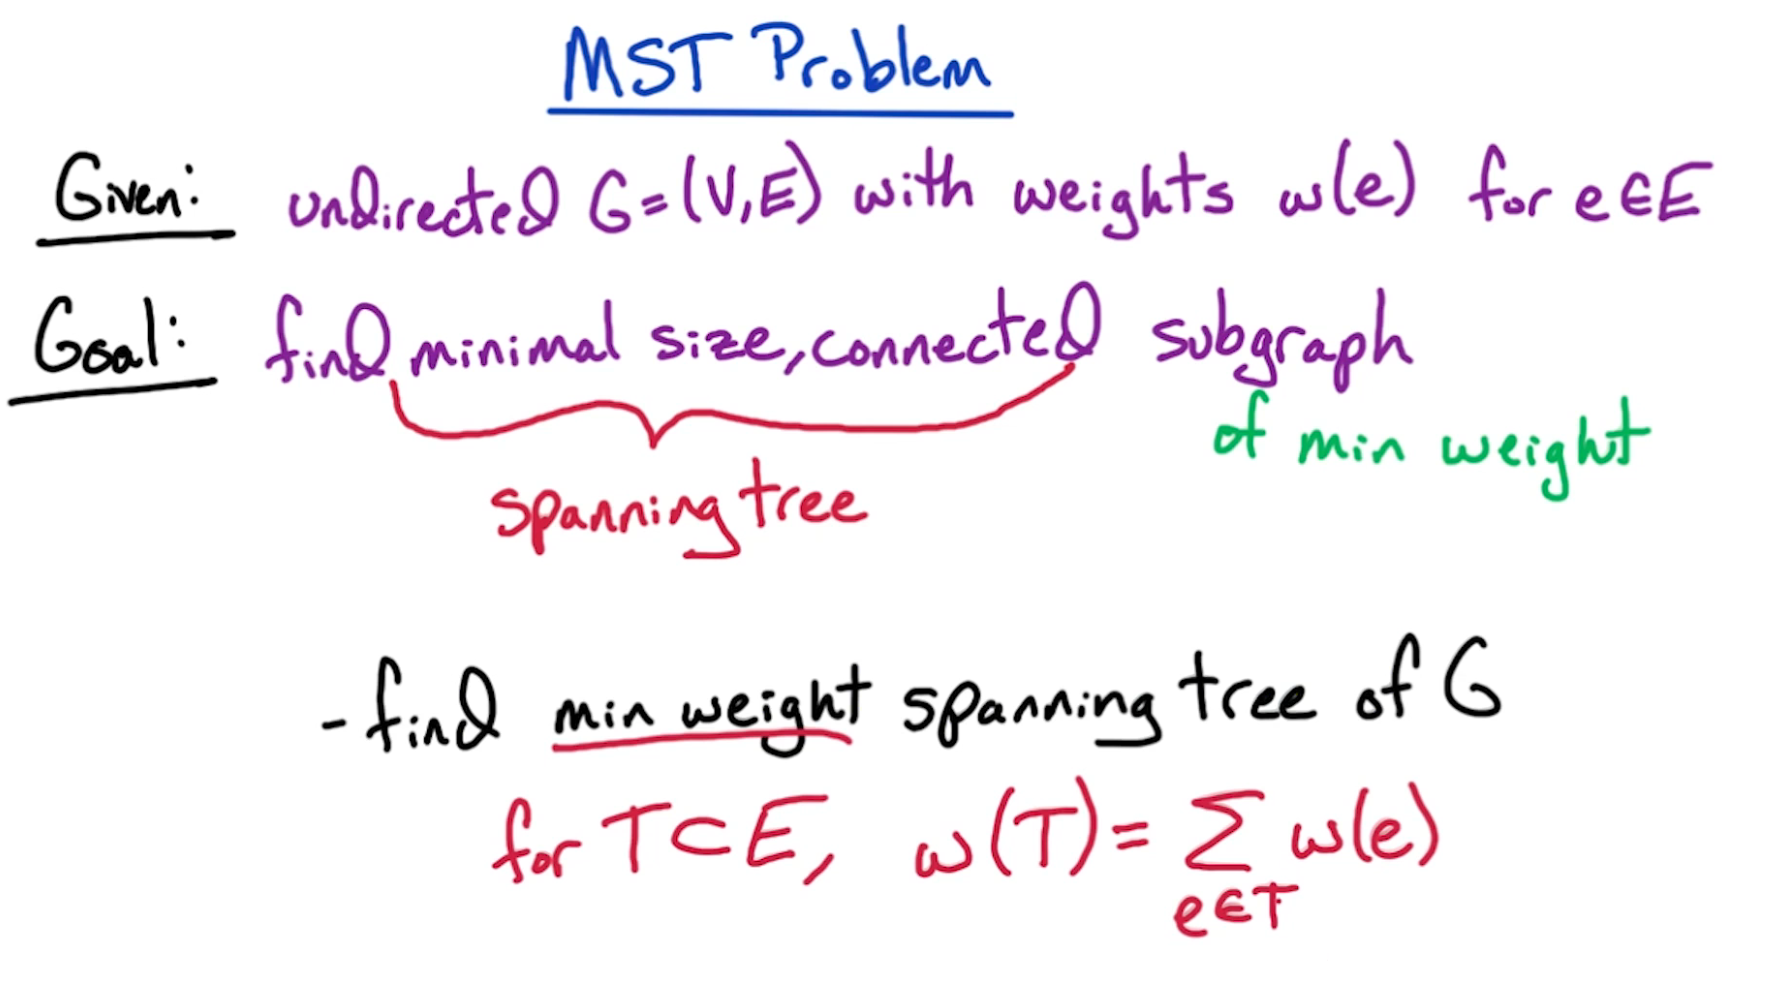 MST Problem
Given: undirected G=(V,E) with weights w(e) for e∈E
Goal: find minimal size, connected subgraph
of min weight
spanning tree
- find min weight spanning tree of G
for T⊂E, w(T)= ∑ w(e)
e∈T